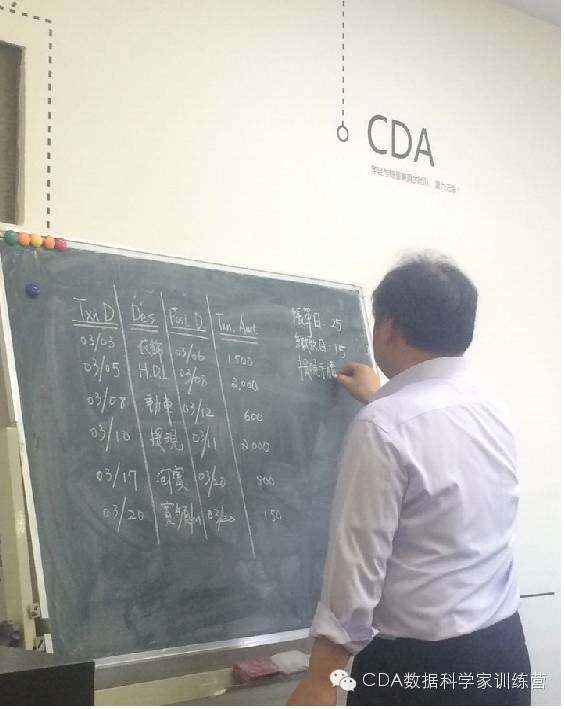 CDA
Txn D Des Post D Txn. Amt
03/03 衣飾 03/06 1,500
03/05 H.D.L 03/08 2,000
03/08 動車 03/12 600
03/10 提現 03/11 2000
03/17 淘寶 03/20 800
03/20 寬頻 03/20 150
帳單日:25
繳款日:15
提現手
CDA数据科学家训练营